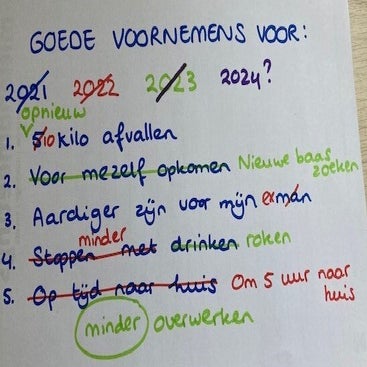 GOEDE VOORNEMENS VOOR:
2021 2022 2023 2024?
opnieuw
1. 5 10 kilo afvallen
2. Voor mezelf opkomen Nieuwe baas
zoeken
3. Aardiger zijn voor mijn ex man
minder
4. Stoppen met drinken roken
5. Op tijd naar huis Om 5 uur naar
huis
minder overwerken